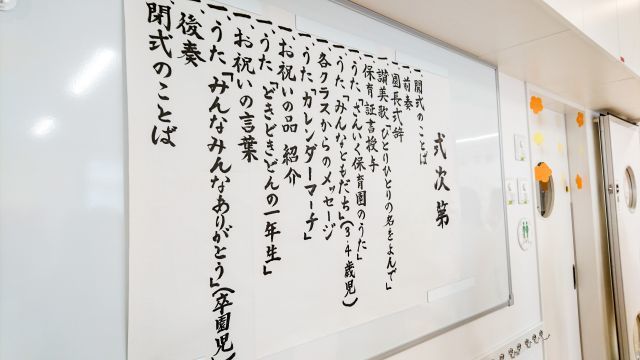 式次第
一、開式のことば
一、前奏
一、園長式辞
一、讃美歌「ひとりひとりの名をよんで」
一、保育証書授与
一、うた「さんいく保育園のうた」
一、うた「みんなともだち」(3・4歳児)
一、各クラスからのメッセージ
一、うた「カレンダーマーチ」
一、お祝いの品 紹介
一、うた「どきどきどんの一年生」
一、お祝いの言葉
一、うた「みんなみんなありがとう」(卒園児)
一、後奏
閉式のことば